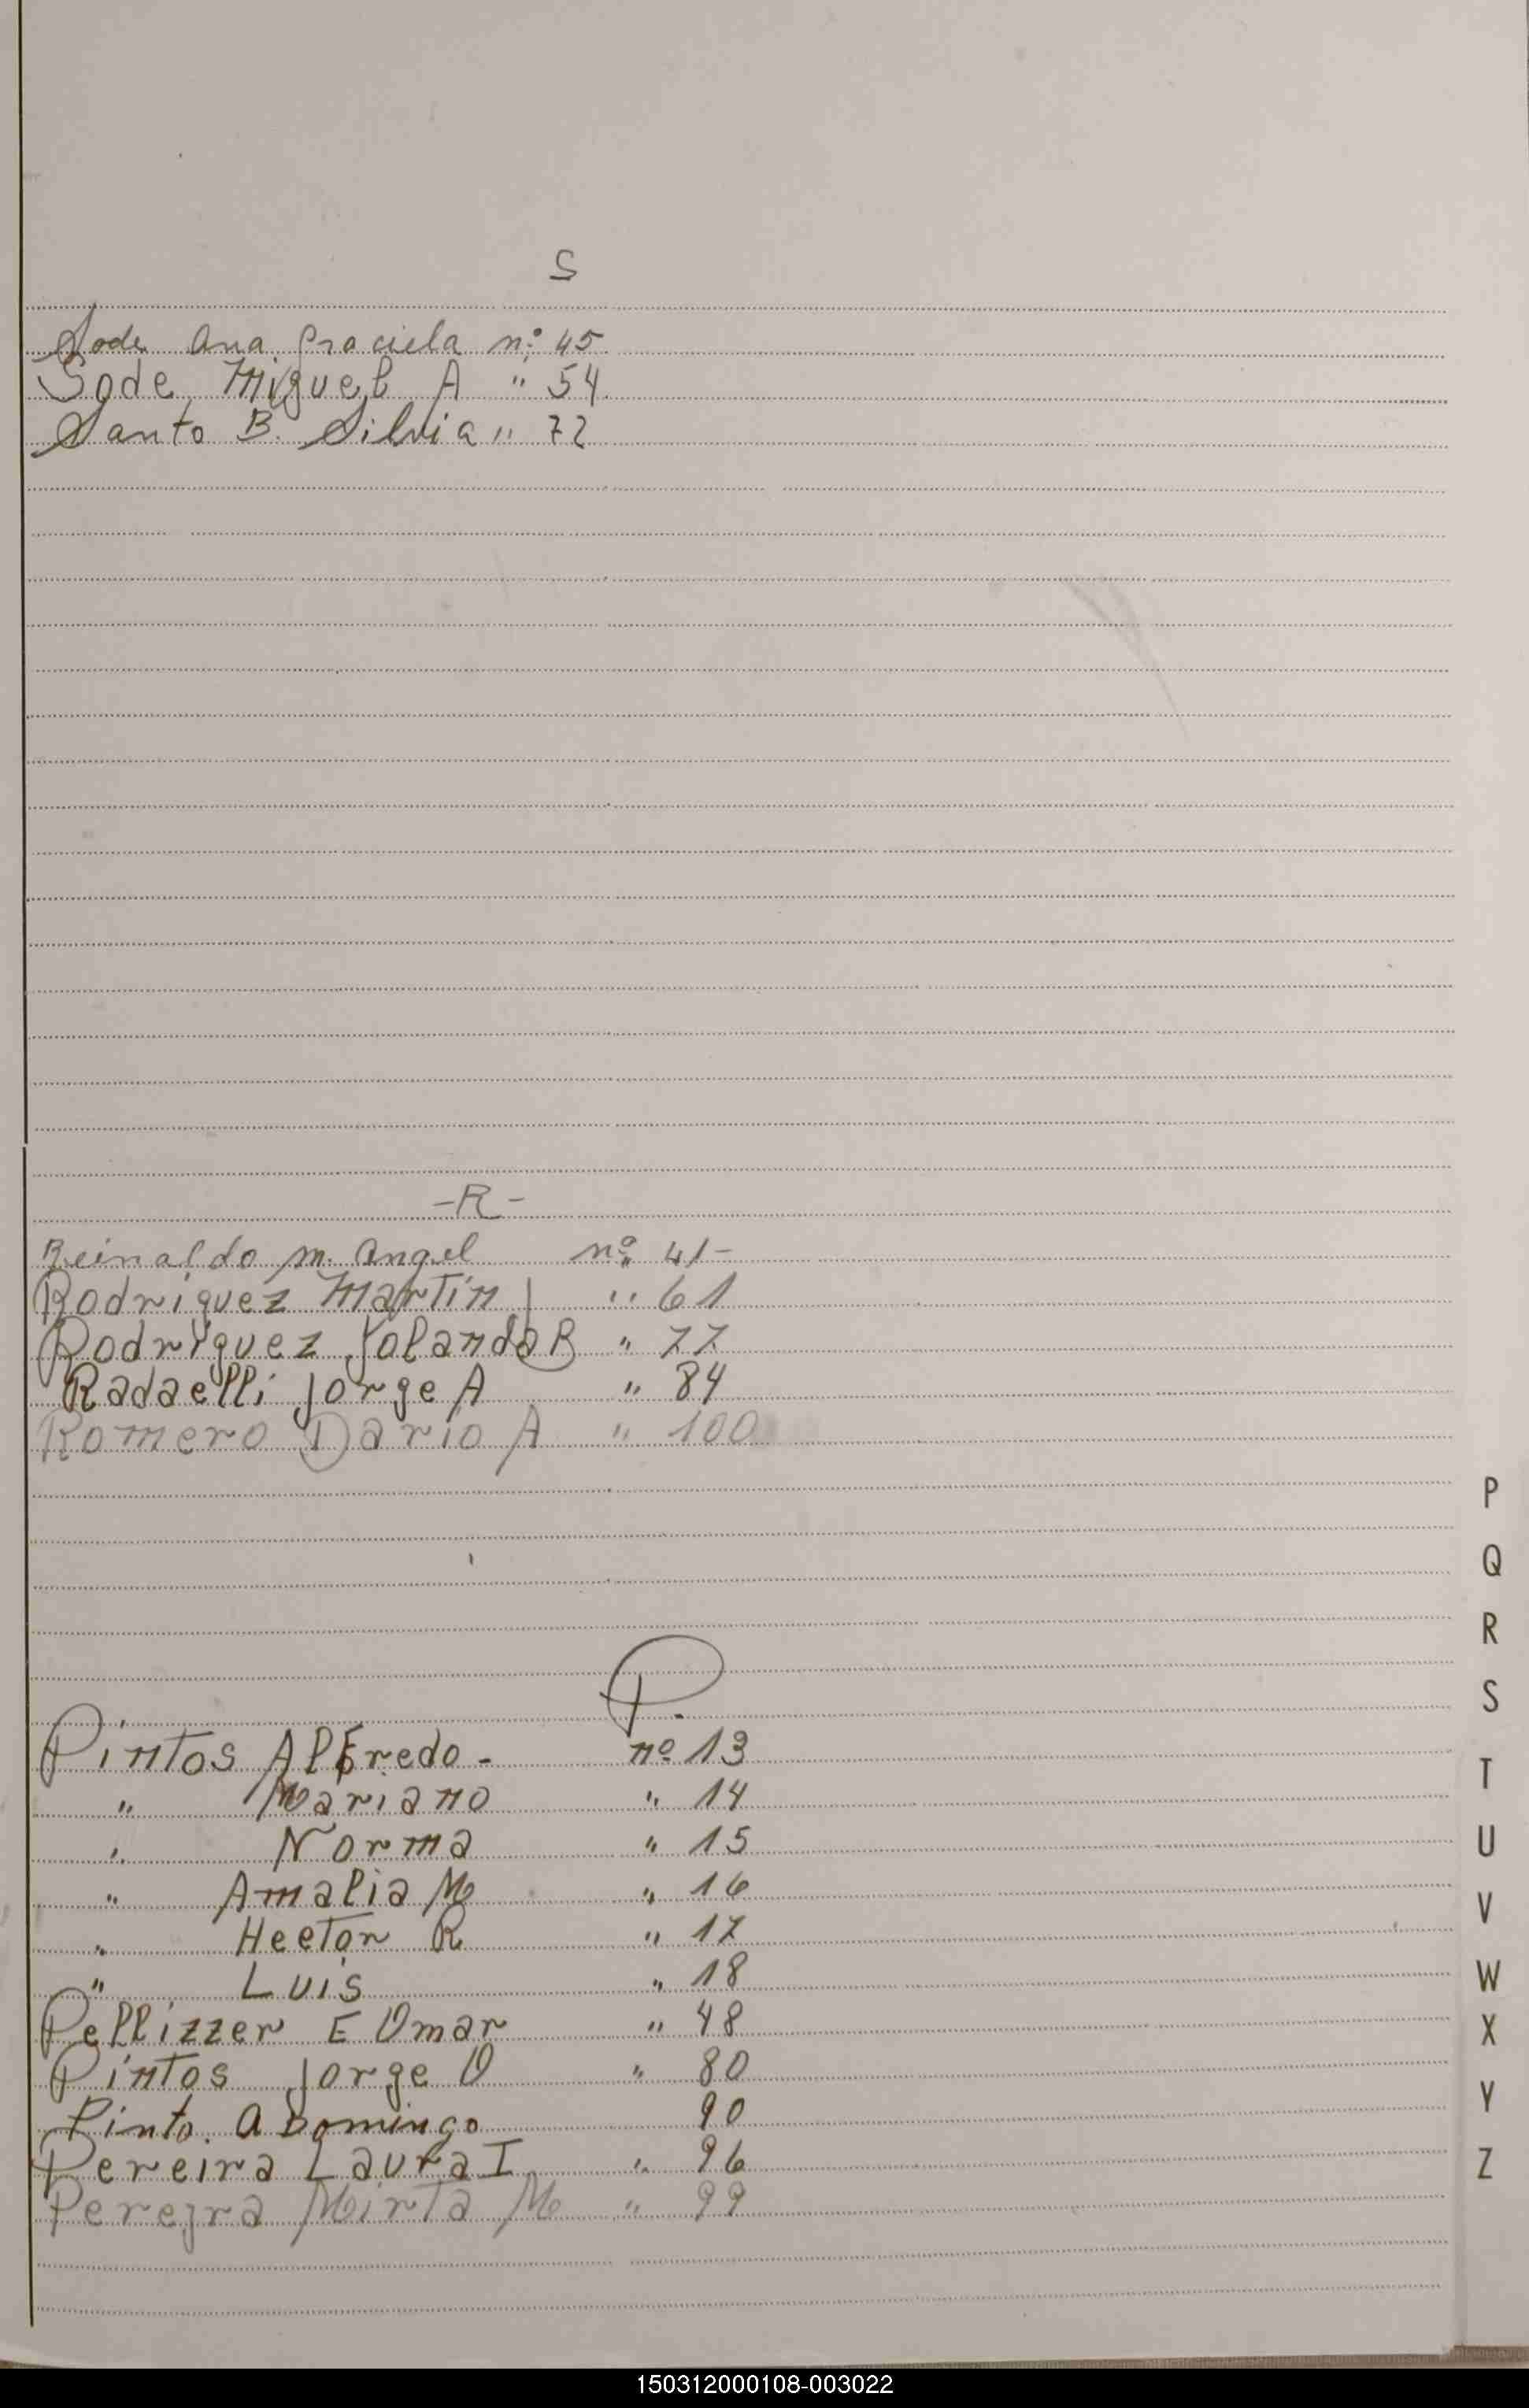 S
Sode Ana Graciela nº 45
Sode Miguel A " 54
Santo B. Silvia " 72
-R-
Reinaldo M. Angel nº 41-
Rodriguez Martin J " 61
Rodriguez Yolanda B " 77
Radaelli Jorge A " 84
Romero Dario A " 100
P.
Pintos Alfredo - nº 13
" Mariano " 14
" Norma " 15
" Amalia M " 16
" Hector R " 17
" Luis " 18
Pellizzer E Omar " 48
Pintos Jorge O " 80
Pinto. A Domingo 90
Pereira Laura I " 96
Pereira Mirta M " 99
P
Q
R
S
T
U
V
W
X
Y
Z
150312000108-003022